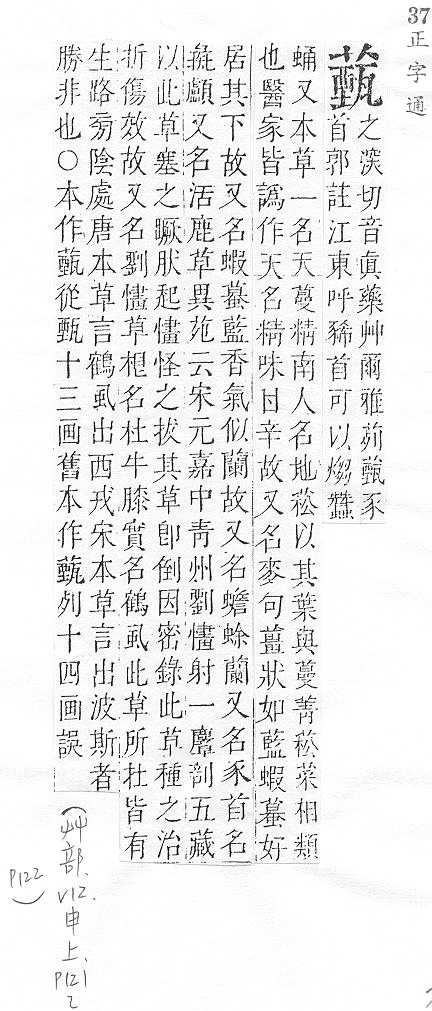 37
正字通
薽
之深切音眞藥艸爾雅茢薽豕
首郭註江東呼豨首可以煼蠶
蛹又本草一名天蔓精南人名地菘以其葉與蔓菁菘菜相類
也醫家皆譌作天名精味甘辛故又名麥句薑狀如藍蝦蟇好
居其下故又名蝦蟇藍香氣似蘭故又名蟾蜍蘭又名豕首名
彘顱又名活鹿草異苑云宋元嘉中靑州劉㦎射一麞剖五藏
以此草塞之蹶肰起㦎怪之拔其草卽倒因密錄此草種之治
折傷效故又名劉㦎草根名杜牛膝實名鶴虱此草所在皆有
生路旁陰處唐本草言鶴虱出西戎宋本草言出波斯者
勝非也○本作薽從甄十三画舊本作薽列十四画誤
(艸部. V12. 申上. P121
2
P122